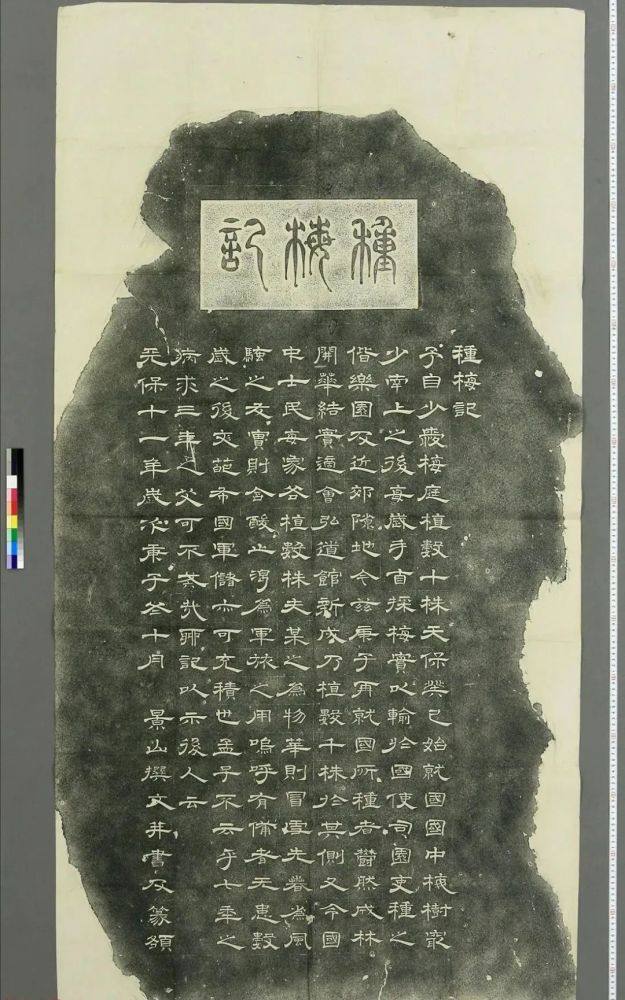 種梅記
種梅記
予自少愛梅庭植數十株天保癸巳始就國國中梅樹最
少南上之後每歲手自採梅實以輸於國使司園吏種之
偕樂園及近郊隙地今茲庚子再就國所種者鬱然成林
開華結實適會弘道館新成乃植數千株於其側又令國
中士民每家各植數株夫某之為物華則冒雪先春為風
騷之友實則含酸止渴為軍旅之用嗚呼有備者无患數
歲之後文葩布國軍儲亦可充積也孟子不云乎七年之
病求三年之艾可不戒哉聊記以示後人云
天保十一年歲次庚子冬十月 景山撰文并書及篆額